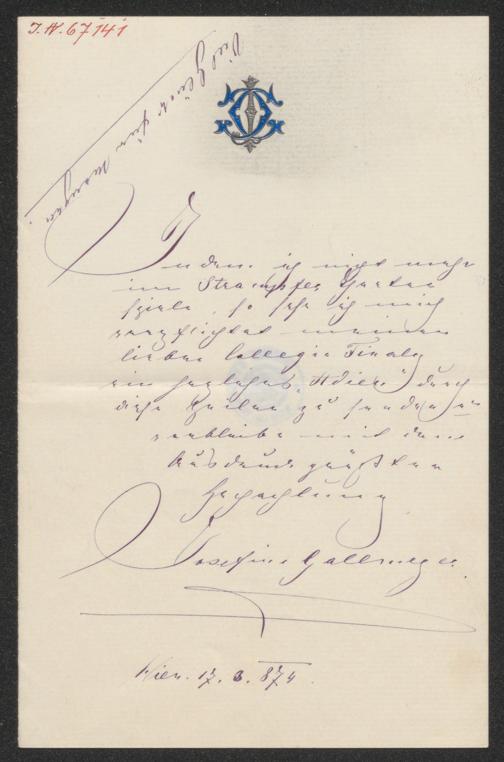 I. N. 67141
Viel Glück für morgen.
Indem ich nicht mehr
im Strampfer Theater
spiele, so sehe ich mich
verpflichtet meinen
lieben Collegin Finaly
ein herzliches "Adieu" durch
diese Zeilen zu senden
verbleibe mit dem
Ausdruck größter
Hochachtung
Josefine Gallmeyer.
Wien. 17. 3. 874.